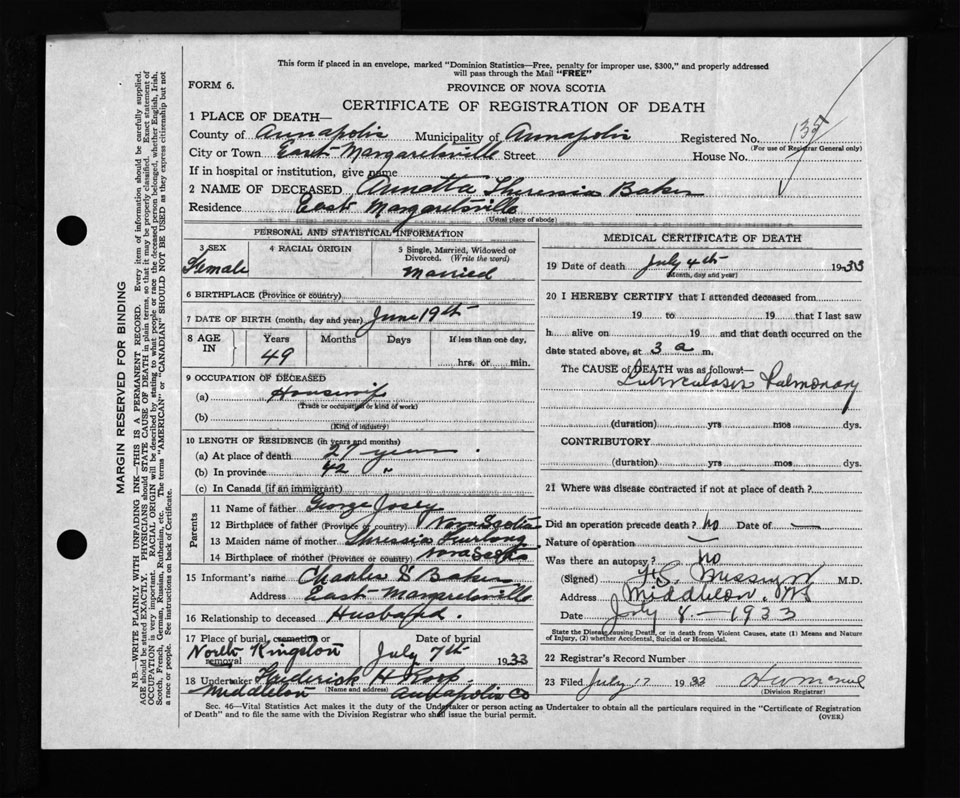 This form if placed in an envelope, marked "Dominion Statistics—Free, penalty for improper use, $300," and properly addressed
will pass through the Mail "FREE"
FORM 6.
PROVINCE OF NOVA SCOTIA
CERTIFICATE OF REGISTRATION OF DEATH
1 PLACE OF DEATH—
County of Annapolis Municipality of Annapolis Registered No.
(For use of Registrar General only)
City or Town East Margaretsville Street House No.
If in hospital or institution, give name
2 NAME OF DECEASED Annetta Theresia Baker
Residence East Margaretsville
(Usual place of abode)
PERSONAL AND STATISTICAL INFORMATION
3 SEX
Female
4 RACIAL ORIGIN
5 Single, Married, Widowed or
Divorced. (Write the word)
Married
6 BIRTHPLACE (Province or country)
7 DATE OF BIRTH (month, day and year) June 19th
8 AGE IN
Years Months Days If less than one day,
49 hrs. or min.
9 OCCUPATION OF DECEASED
(a) Housewife
(Trade or occupation or kind of work)
(b)
(Kind of industry)
10 LENGTH OF RESIDENCE (in years and months)
(a) At place of death 27 years
(b) In province 42 "
(c) In Canada (if an immigrant)
Parents
11 Name of father George Josey
12 Birthplace of father (Province or country) Nova Scotia
13 Maiden name of mother Theressia Furlong
14 Birthplace of mother (Province or country) Nova Scotia
15 Informant's name Charles S Baker
Address East Margaretsville
16 Relationship to deceased Husband.
17 Place of burial, cremation or removal Date of burial
North Kingston July 7th 1933
18 Undertaker Frederick H Roop
(Name and address)
Middleton Annapolis Co
MEDICAL CERTIFICATE OF DEATH
19 Date of death July 4th 1933
(Month, day and year)
20 I HEREBY CERTIFY that I attended deceased from
19 to 19 that I last saw
h alive on 19 and that death occurred on the
date stated above, at 3 a m.
The CAUSE of DEATH was as follows:—
Tuberculosis Pulmonary
(duration) yrs mos dys.
CONTRIBUTORY
(duration) yrs mos dys.
21 Where was disease contracted if not at place of death?
Did an operation precede death? No Date of —
Nature of operation —
Was there an autopsy? no
(Signed) M.D.
Address Middleton, NS
Date July 8 - 1933
State the Disease causing Death, or in death from Violent Causes, state (1) Means and Nature
of Injury, (2) whether Accidental, Suicidal or Homicidal.
22 Registrar's Record Number
23 Filed July 17 1933
(Division Registrar)
Sec. 46—Vital Statistics Act makes it the duty of the Undertaker or person acting as Undertaker to obtain all the particulars required in the "Certificate of Registration
of Death" and to file the same with the Division Registrar who shall issue the burial permit.
(OVER)
MARGIN RESERVED FOR BINDING
N.B.—WRITE PLAINLY WITH UNFADING INK—THIS IS A PERMANENT RECORD. Every item of information should be carefully supplied.
AGE should be stated EXACTLY. PHYSICIANS should STATE CAUSE OF DEATH in plain terms, so that it may be properly classified. Exact statement of
OCCUPATION is very important. RACIAL ORIGIN will be described by stating to what people or race the deceased person belonged, whether English, Irish,
Scotch, French, German, Russian, Ruthenian, etc. The terms "AMERICAN" or "CANADIAN" SHOULD NOT BE USED as they express citizenship but not
a race or people. See instructions on back of Certificate.